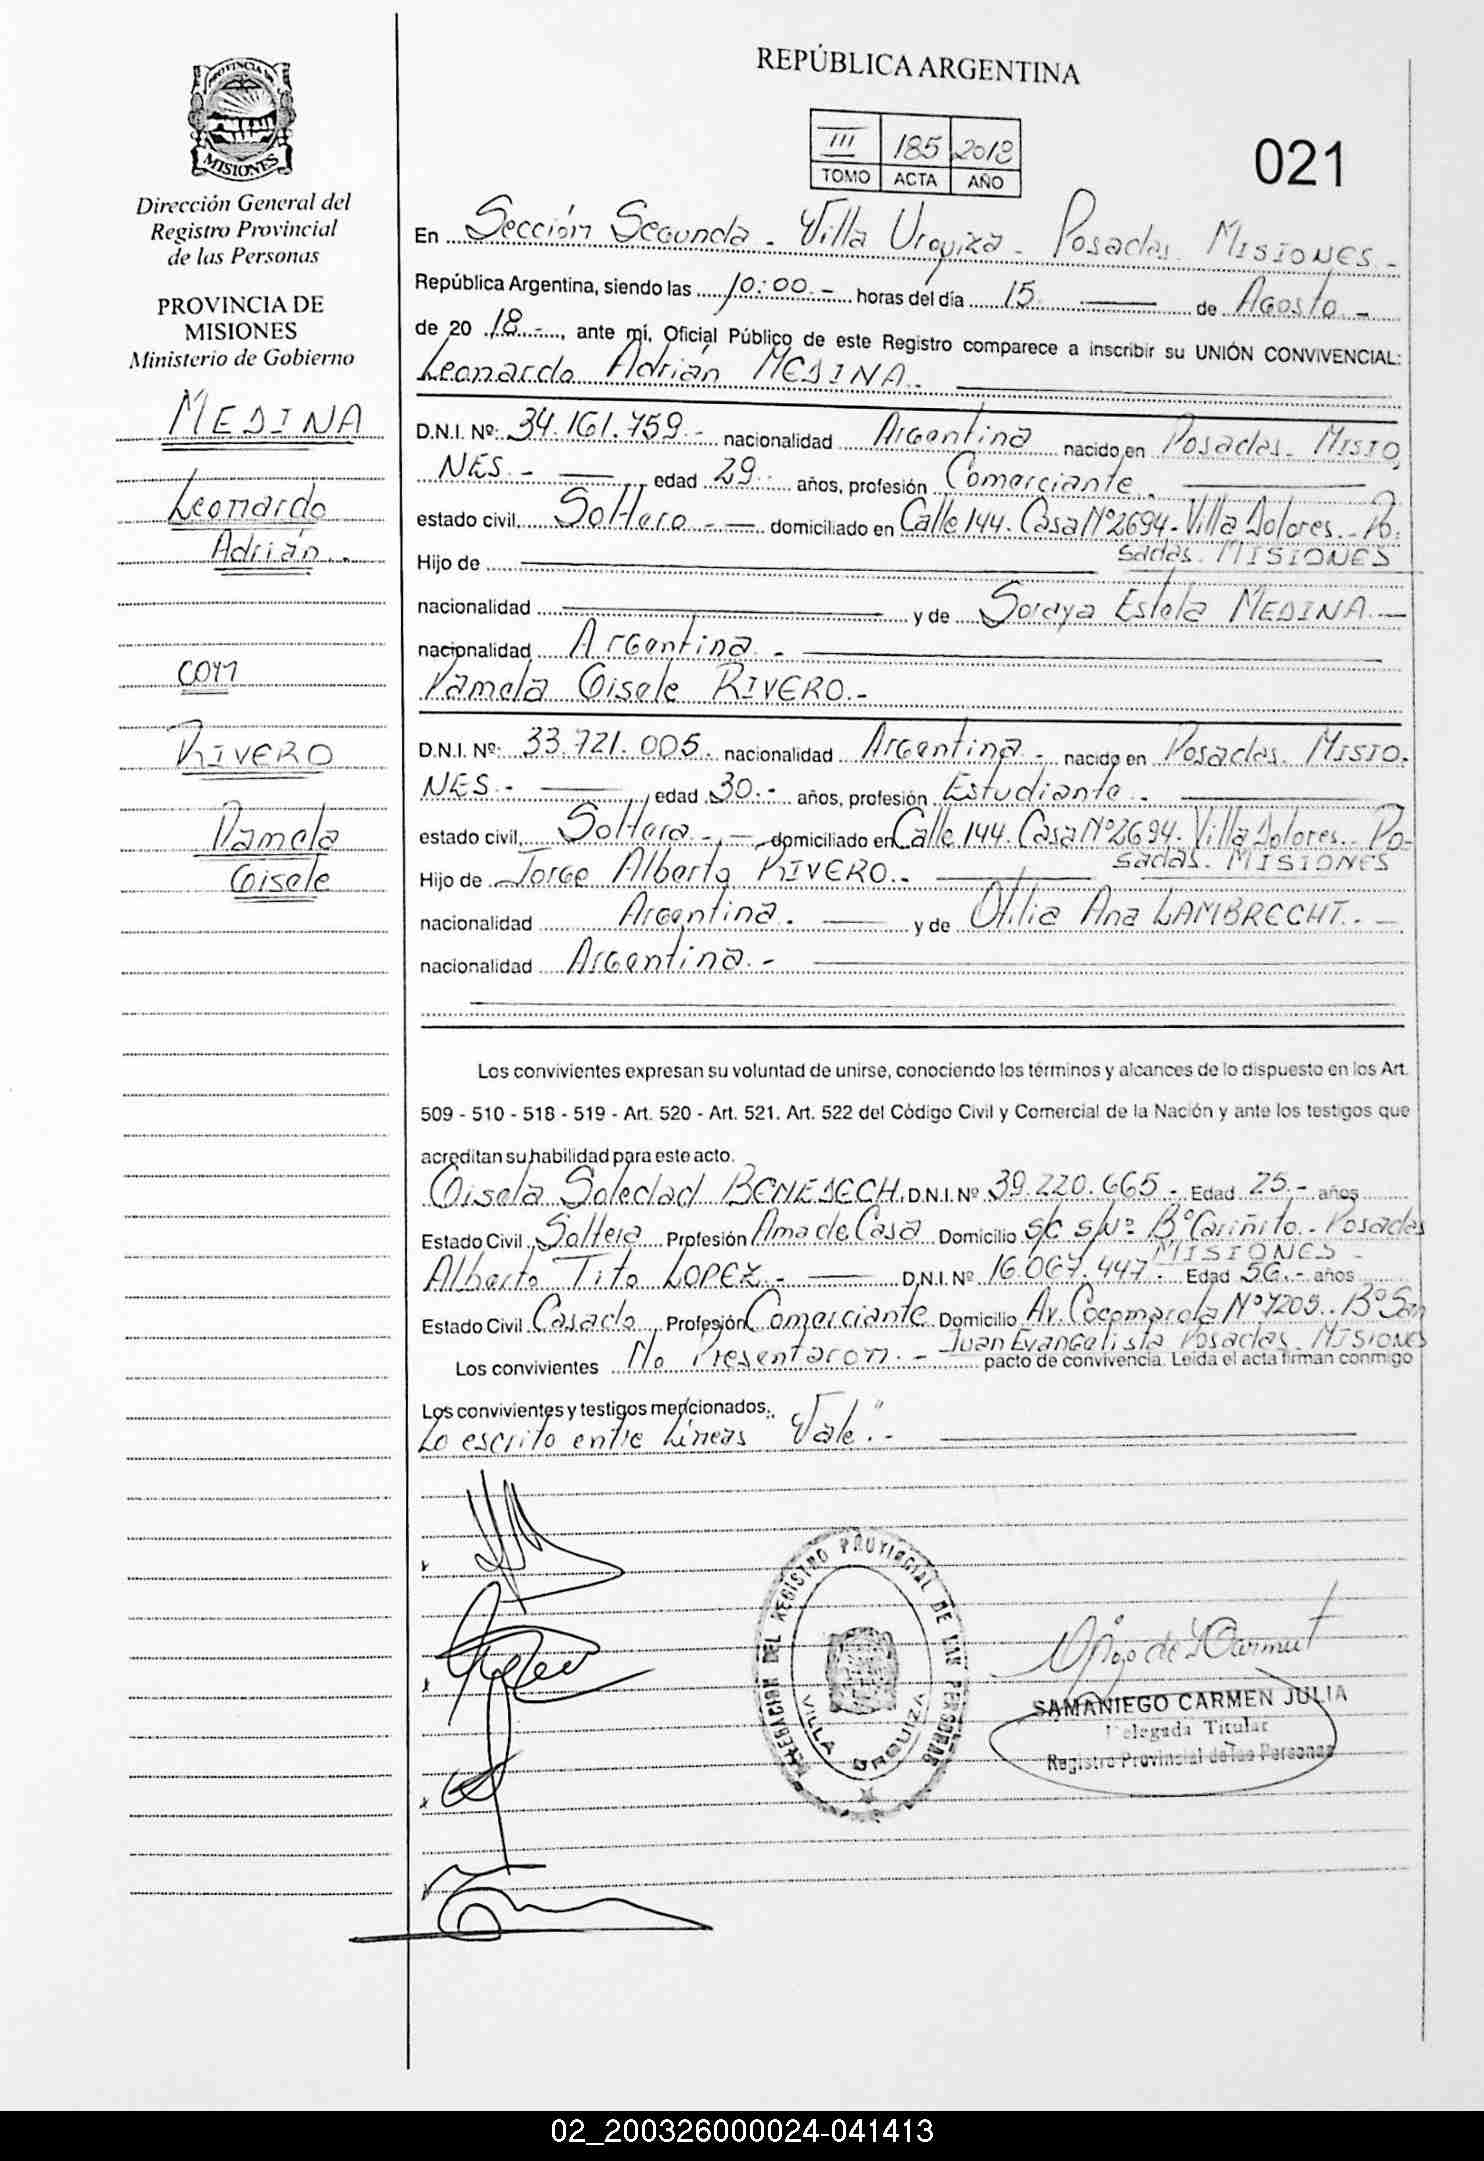 PROVINCIA DE
MISIONES
Dirección General del
Registro Provincial
de las Personas
PROVINCIA DE
MISIONES
Ministerio de Gobierno
MEDINA
Leonardo
Adrián.-
con
RIVERO
Pamela
Gisele
REPÚBLICA ARGENTINA
III 185 2018
TOMO ACTA AÑO
021
En Sección Segunda - Villa Urquiza - Posadas. MISIONES.-
República Argentina, siendo las 10:00.- horas del día 15. de Agosto.-
de 20 18.-, ante mí, Oficial Público de este Registro comparece a inscribir su UNIÓN CONVIVENCIAL:
Leonardo Adrián MEDINA.
D.N.I. Nº: 34.161.759.- nacionalidad Argentina nacido en Posadas. MISIO
NES.- edad 29.- años, profesión Comerciante.
estado civil, Soltero.- domiciliado en Calle 144. Casa Nº2694. Villa Dolores.- Po.
sadas. MISIONES
Hijo de
nacionalidad y de Soraya Estela MEDINA.-
nacionalidad Argentina.-
Pamela Gisele RIVERO.-
D.N.I. Nº: 33.721.005. nacionalidad Argentina.- nacido en Posadas. MISIO.
NES.- edad 30.- años, profesión Estudiante.
estado civil, Soltera.-, domiciliado en Calle 144. Casa Nº2694. Villa Dolores.. Po-
sadas. MISIONES
Hijo de Jorge Alberto RIVERO..
nacionalidad Argentina. y de Otilia Ana LAMBRECHT.-
nacionalidad Argentina.-
Los convivientes expresan su voluntad de unirse, conociendo los términos y alcances de lo dispuesto en los Art.
509 - 510 - 518 - 519 - Art. 520 - Art. 521. Art. 522 del Código Civil y Comercial de la Nación y ante los testigos que
acreditan su habilidad para este acto.
Gisela Soledad BENEDECH. D.N.I. Nº 39.220.665.- Edad 25.- años
Estado Civil Soltera Profesión Ama de Casa Domicilio s/c s/Nº Bº Cariñito.. Posadas
MISIONES -
Alberto Tito LOPEZ.- D.N.I. Nº 16.067.447.- Edad 56.- años
Estado Civil Casado, Profesión Comerciante Domicilio Av. Cocomarola Nº7205.. Bº San
Juan Evangelista Posadas. MISIONES
Los convivientes No Presentaron.- pacto de convivencia. Leída el acta firman conmigo
Los convivientes y testigos mencionados.
Lo escrito entre líneas "Vale".-
DELEGACION DEL REGISTRO PROVINCIAL DE LAS PERSONAS
VILLA URQUIZA
SAMANIEGO CARMEN JULIA
Delegada Titular
Registro Provincial de las Personas
02_200326000024-041413